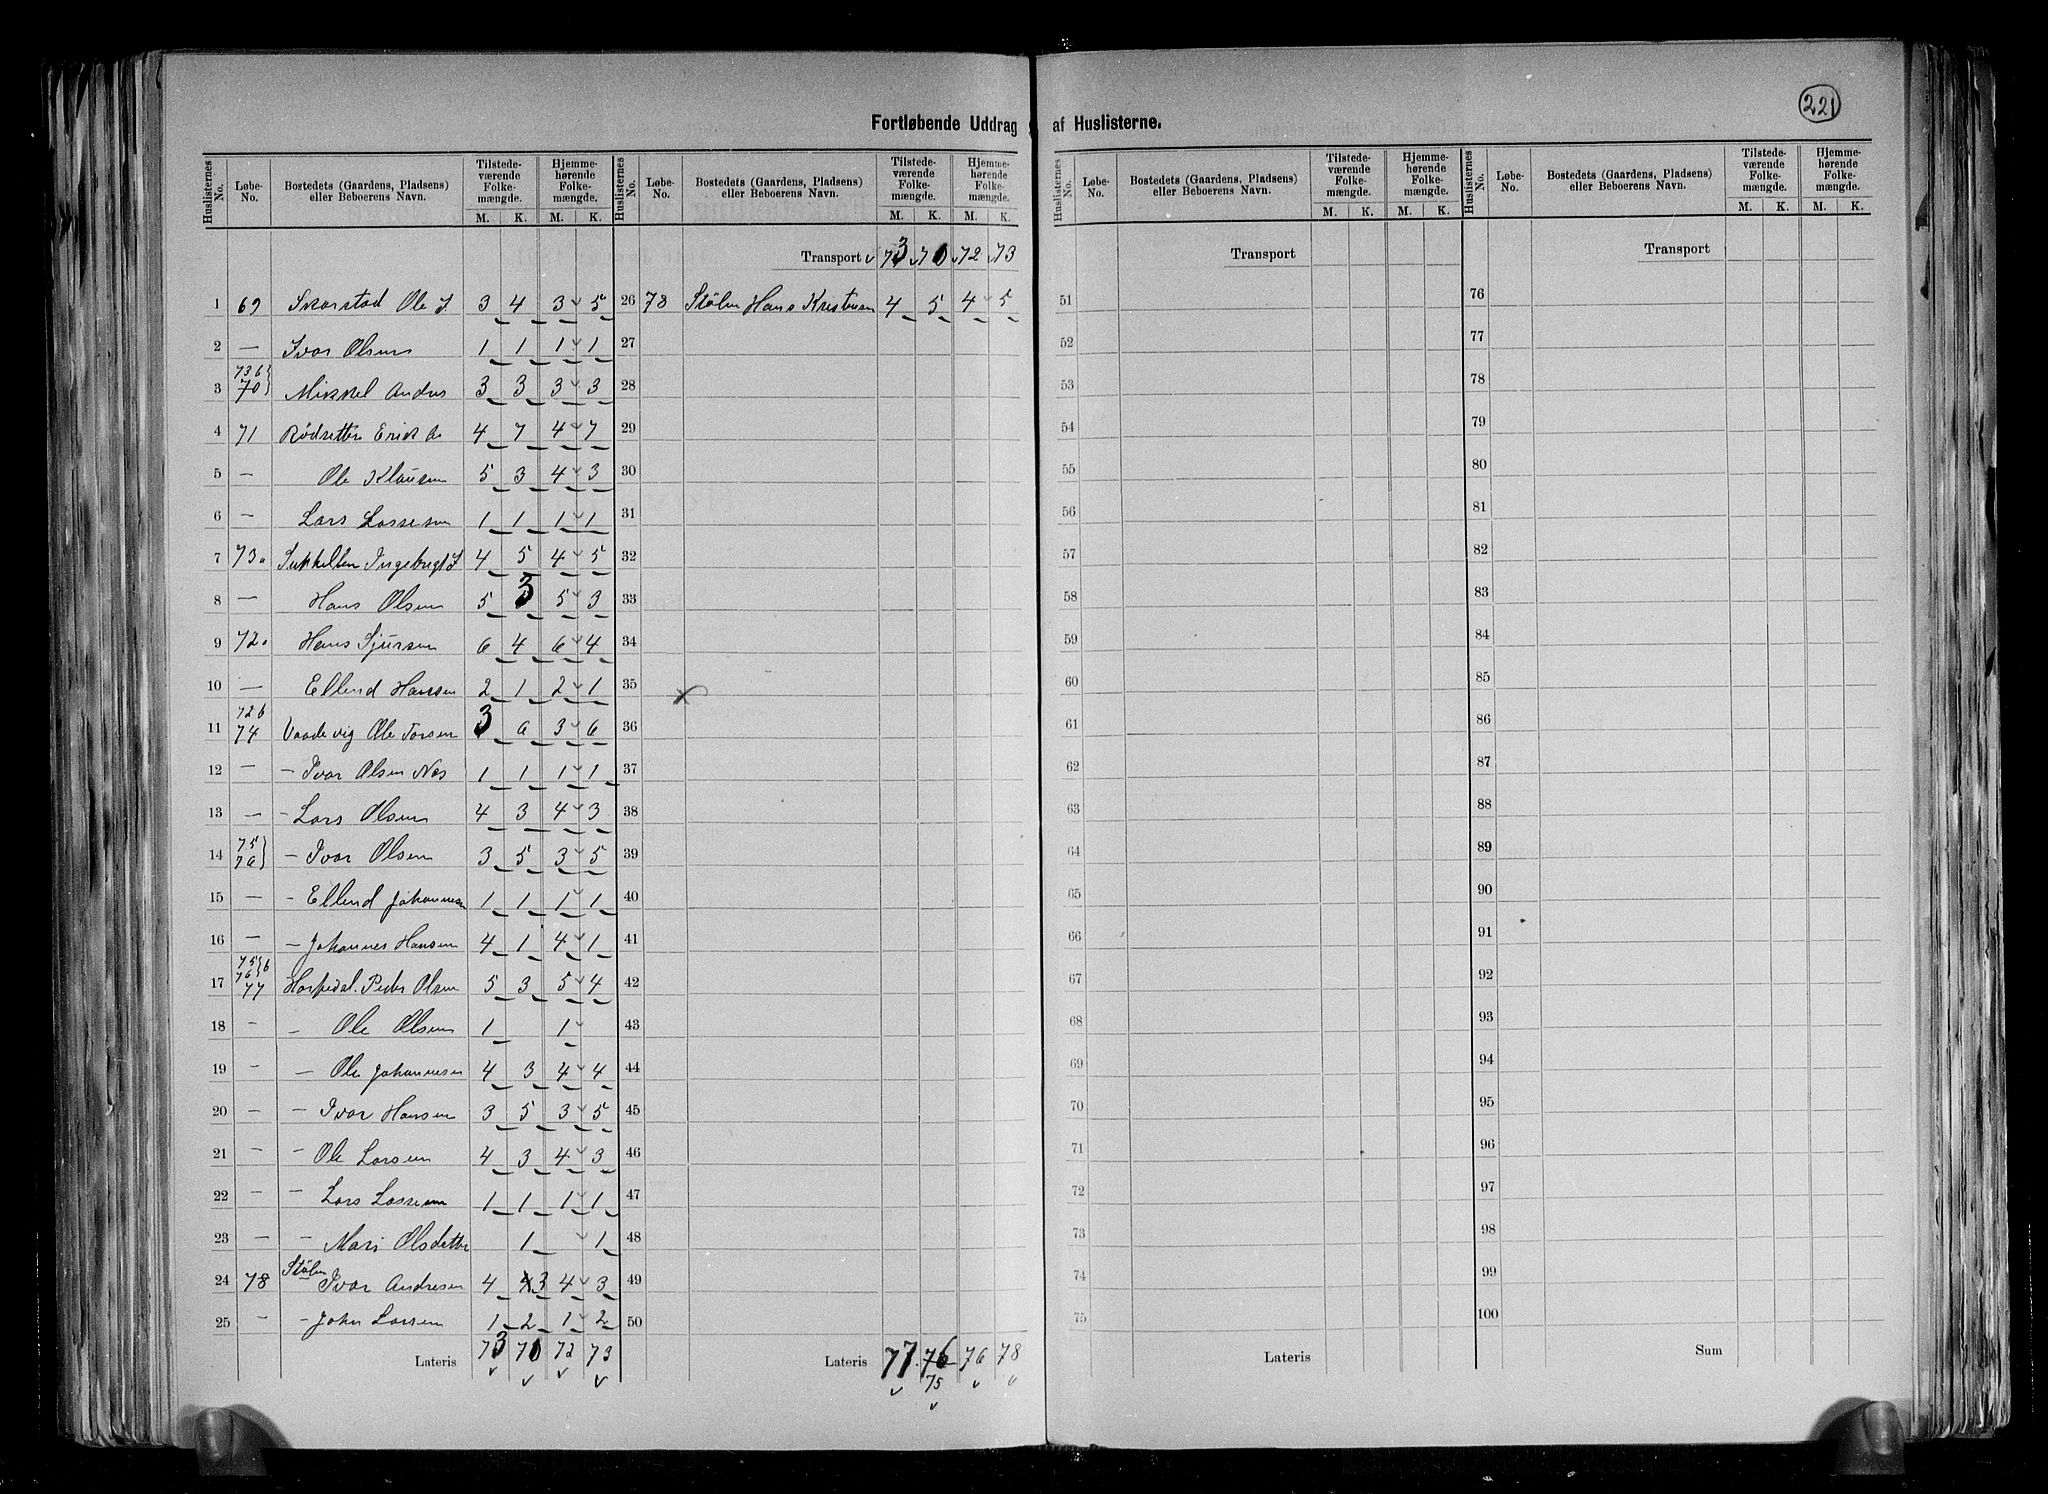 221
Fortløbende Uddrag af Huslisterne.
Huslisternes No. Løbe-No. Bostedets (Gaardens, Pladsens) eller Beboerens Navn. Tilstedeværende Folkemængde. M. K. Hjemmehørende Folkemængde. M. K.
1 69 Skorstad Ole J. 3 4 3 5
2 — Ivar Olsen 1 1 1 1
3 73b 70 Mikkel Andrs 3 3 3 3
4 71 Rødsetter Erick A. 4 7 4 7
5 — Ole Klausen 5 3 4 3
6 — Lars Lassesen 1 1 1 1
7 73a Ingebrigt J 4 5 4 5
8 — Hans Olsen 5 3 5 3
9 72a Hans Sjursen 6 4 6 4
10 — Ellend Hansen 2 1 2 1
11 72b 74 Vaadevig Ole Torsen 3 6 3 6
12 — - Ivar Olsen Næs 1 1 1 1
13 — - Lars Olsen 4 3 4 3
14 75 76 - Ivar Olsen 3 5 3 5
15 — - Ellend Johannesen 1 1 1 1
16 — - Johannes Hansen 4 1 4 1
17 75 76 b 77 Horpedal. Peder Olsen 5 3 5 4
18 - - Ole Olsen 1 1
19 - - Ole Johannesen 4 3 4 4
20 - - Ivar Hansen 3 5 3 5
21 - - Ole Larsen 4 3 4 3
22 - - Lars Lassesen 1 1 1 1
23 - - Mari Olsdatter 1 1
24 78 Stølen Ivar Andresen 4 4 3 4 3
25 - - John Larsen 1 2 1 2
Lateris 73 70 72 73
Huslisternes No. Løbe-No. Bostedets (Gaardens, Pladsens) eller Beboerens Navn. Tilstedeværende Folkemængde. M. K. Hjemmehørende Folkemængde. M. K.
Transport 73 70 72 73
26 78 Stølen Hans Kristensen 4 5 4 5
27
28
29
30
31
32
33
34
35
36
37
38
39
40
41
42
43
44
45
46
47
48
49
50
Lateris 77 76 76 78
75
Huslisternes No. Løbe-No. Bostedets (Gaardens, Pladsens) eller Beboerens Navn. Tilstedeværende Folkemængde. M. K. Hjemmehørende Folkemængde. M. K.
Transport
51
52
53
54
55
56
57
58
59
60
61
62
63
64
65
66
67
68
69
70
71
72
73
74
75
Lateris
Huslisternes No. Løbe-No. Bostedets (Gaardens, Pladsens) eller Beboerens Navn. Tilstedeværende Folkemængde. M. K. Hjemmehørende Folkemængde. M. K.
Transport
76
77
78
79
80
81
82
83
84
85
86
87
88
89
90
91
92
93
94
95
96
97
98
99
100
Sum